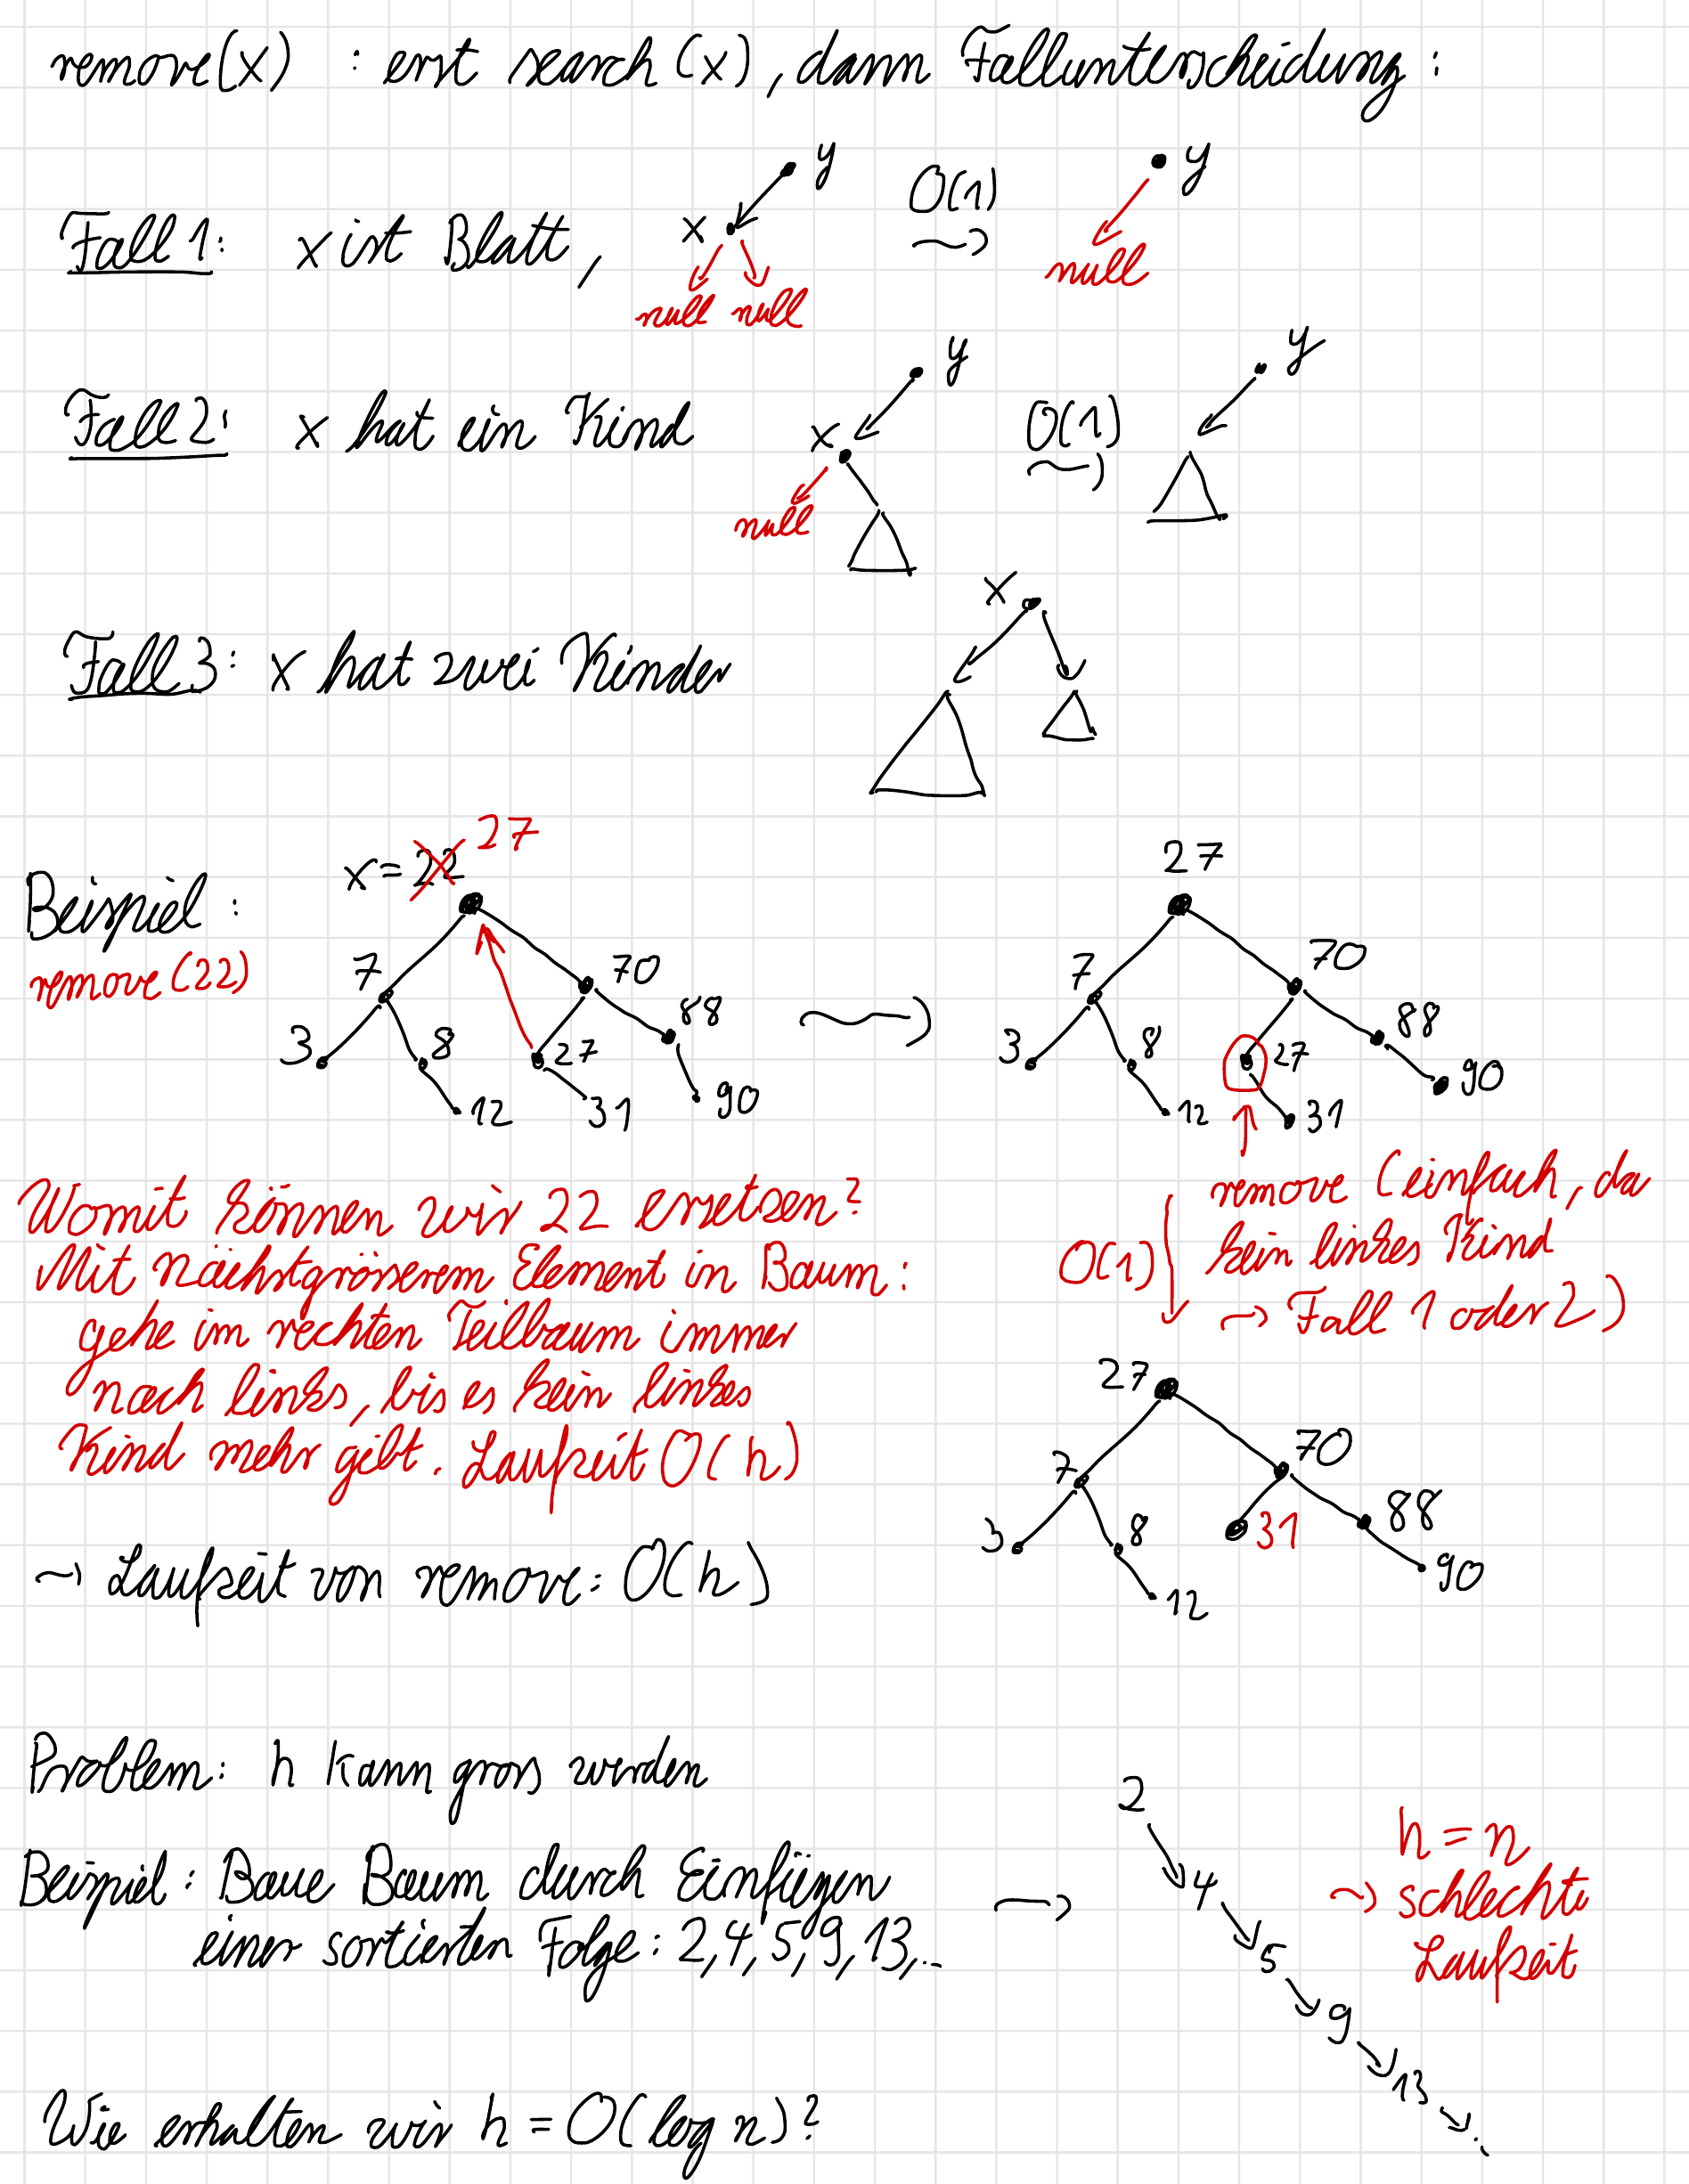 remove(x) : erst search(x), dann Fallunterscheidung:
y
y
O(1)
Fall 1: x ist Blatt,
x
null null
null
y
y
Fall 2: x hat ein Kind
x
O(1)
null
x
Fall 3: x hat zwei Kinder
27
x = 22
27
Beispiel:
remove(22)
7
70
3
8
27
88
12
31
90
7
70
3
8
27
88
12
31
90
Womit können wir 22 ersetzen?
Mit nächstgrösserem Element in Baum:
gehe im rechten Teilbaum immer
nach links, bis es kein linkes
Kind mehr gibt. Laufzeit O(h)
remove (einfach, da
O(1) kein linkes Kind
→ Fall 1 oder 2)
27
7
70
3
8
31
88
12
90
→ Laufzeit von remove: O(h)
Problem: h kann gross werden
Beispiel: Baue Baum durch Einfügen
einer sortierten Folge: 2,4,5,9,13,..
2
4
5
9
13
h = n
→ schlechte
Laufzeit
Wie erhalten wir h = O(log n)?